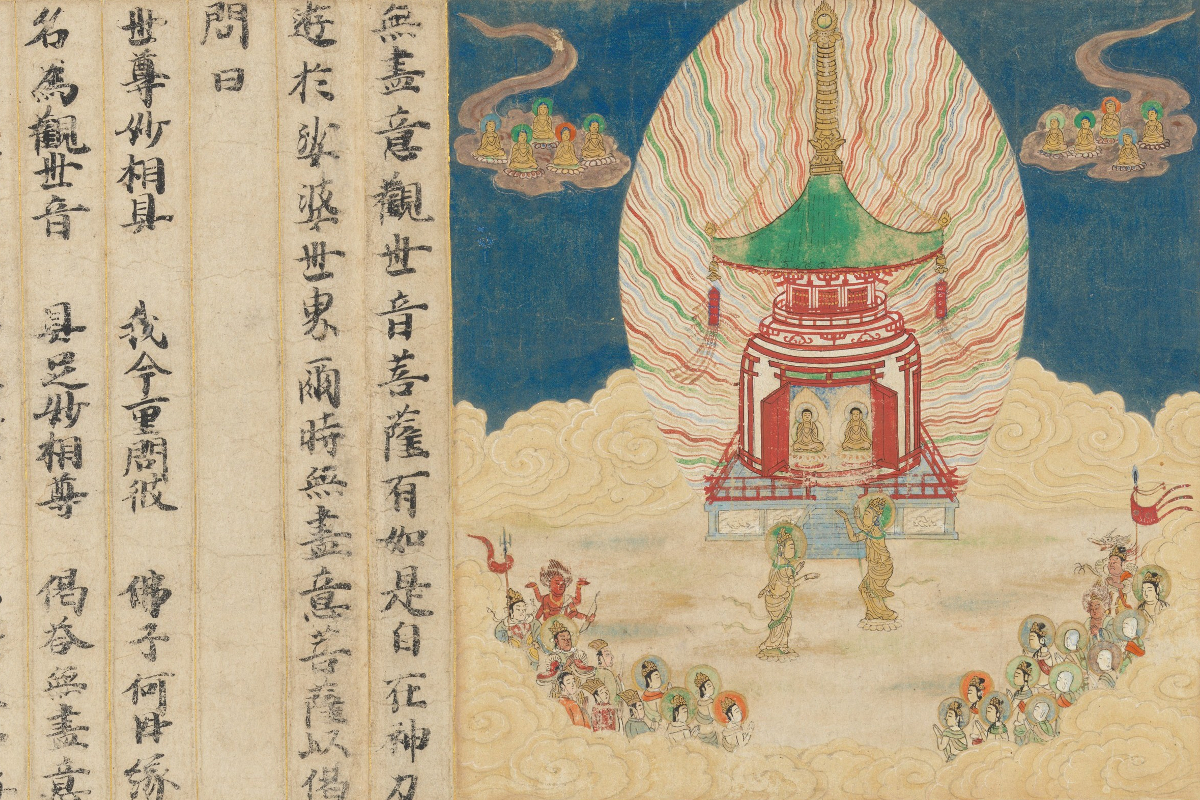 無盡意觀世音菩薩有如是自在神力
遊於娑婆世界爾時無盡意菩薩以偈
問曰
世尊妙相具 我今重問彼 佛子何因緣
名為觀世音 具足妙相尊 偈答無盡意